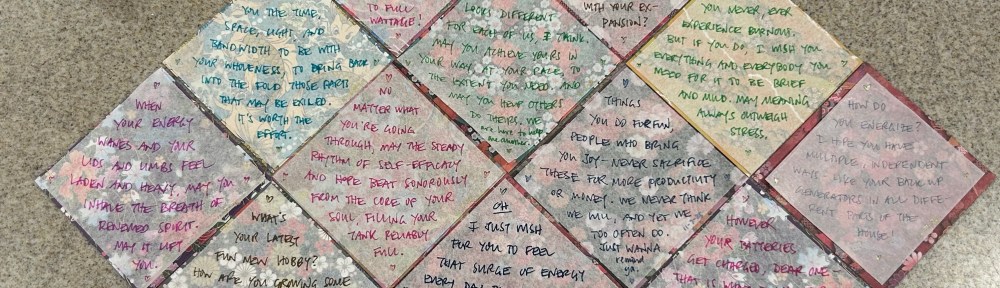 TO FULL
WATTAGE!
WITH YOUR EX-
PANSION?
YOU THE TIME,
SPACE, LIGHT AND
BANDWIDTH TO BE WITH
YOUR WHOLENESS, TO BRING BACK
INTO THE FOLD THOSE PARTS
THAT MAY BE EXILED.
IT'S WORTH THE
EFFORT.
LOOKS DIFFERENT
FOR EACH OF US, I THINK.
MAY YOU ACHIEVE YOURS IN
YOUR WAY, AT YOUR PACE, TO
THE EXTENT YOU NEED AND
MAY YOU HELP OTHERS
DO THEIRS. WE
are here to help
one another.
YOU NEVER EVER
EXPERIENCE BURNOUT.
BUT IF YOU DO, I WISH YOU
EVERYTHING AND EVERYBODY YOU
NEED FOR IT TO BE BRIEF
AND MILD. MAY MEANING
ALWAYS OUTWEIGH
STRESS.
WHEN
YOUR ENERGY
WANES AND YOUR
LIDS AND LIMBS FEEL
LADEN AND HEAVY, MAY YOU
INHALE THE BREATH OF
RENEWED SPIRIT.
MAY IT LIFT
YOU.
NO
MATTER WHAT
YOU'RE GOING
THROUGH, MAY THE STEADY
RHYTHM OF SELF-EFFICACY
AND HOPE BEAT SONOROUSLY
FROM THE CORE OF YOUR
SOUL FILLING YOUR
TANK RELIABLY
FULL.
THINGS
YOU DO FOR FUN,
PEOPLE WHO BRING
YOU JOY - NEVER SACRIFICE
THESE FOR MORE PRODUCTIVITY
OR MONEY. WE NEVER THINK
WE WILL, AND YET WE
TOO OFTEN DO.
JUST WANNA
remind
ya.
HOW DO
YOU ENERGIZE?
I HOPE YOU HAVE
MULTIPLE, INDEPENDENT
WAYS - LIKE YOUR BACK UP
GENERATORS IN ALL DIFFE
RENT PARTS OF THE
HOUSE!
WHAT'S
YOUR LATEST
FUN NEW HOBBY?
HOW ARE YOU GROWING SOME
OH
I JUST WISH
FOR YOU TO FEEL
THAT SURGE OF ENERGY
EVERY DAY
HOWEVER
YOUR BATTERIES
GET CHARGED, DEAR ONE -
THAT IS WHAT